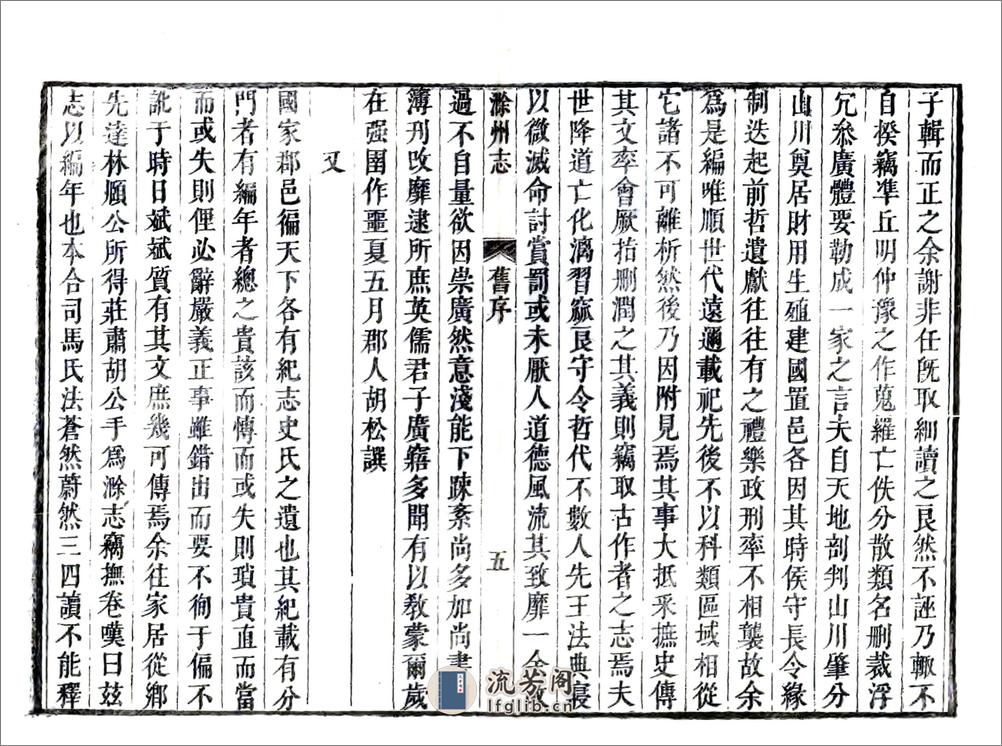 子輯而正之余謝非任既取細讀之良然不誣乃輒不
自揆竊準丘明仲豫之作蒐羅亡佚分散類名刪裁浮
冗參廣體要勒成一家之言夫自天地剖判山川肇分
山川奠居財用生殖建國置邑各因其時侯守長令緣
制迭起前哲遺獻往往有之禮樂政刑率不相襲故余
為是編唯順世代遠邇載祀先後不以科類區域相從
它諸不可離析然後乃因附見焉其事大抵采摭史傳
其文率會厥指刪潤之其義則竊取古作者之志焉夫
世降道亡化漓習窳良守令哲代不數人先王法典寖
以微滅命討賞罰或未厭人道德風流其致靡一余
滁州志 舊序 五
過不自量欲因崇廣然意淺能下踈紊尚多加尚書
簿刊改靡逮所庶英儒君子廣窹多聞有以教蒙爾歲
在强圉作噩夏五月郡人胡松譔
又
國家郡邑徧天下各有紀志史氏之遺也其紀載有分
門者有編年者總之貴該而愽而或失則瑣貴直而當
而或失則俚必辭嚴義正事雖錯出而要不徇于偏不
訛于時日斌斌質有其文庶幾可傳焉余往家居從鄉
先達林頫公所得莊肅胡公手為滁志竊撫卷嘆曰玆
志以編年也本合司馬氏法蒼然蔚然三四讀不能釋
流芳阁
lfglib.cn